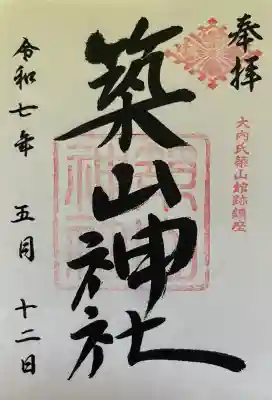 奉拝
大内氏築山館跡鎮座
築山神社
令和七年 五月 十二日